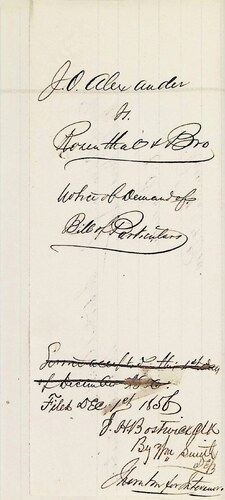 J. O. Alexander
vs.
Rosenthal & Bro
Notice of Demand of
Bill of Particulars
Service accepted this 1st day
of December 1856
Filed Dec 1st 1856
J. H. Bostwick Clk
By Wm Smith
D Clk
Thornton for